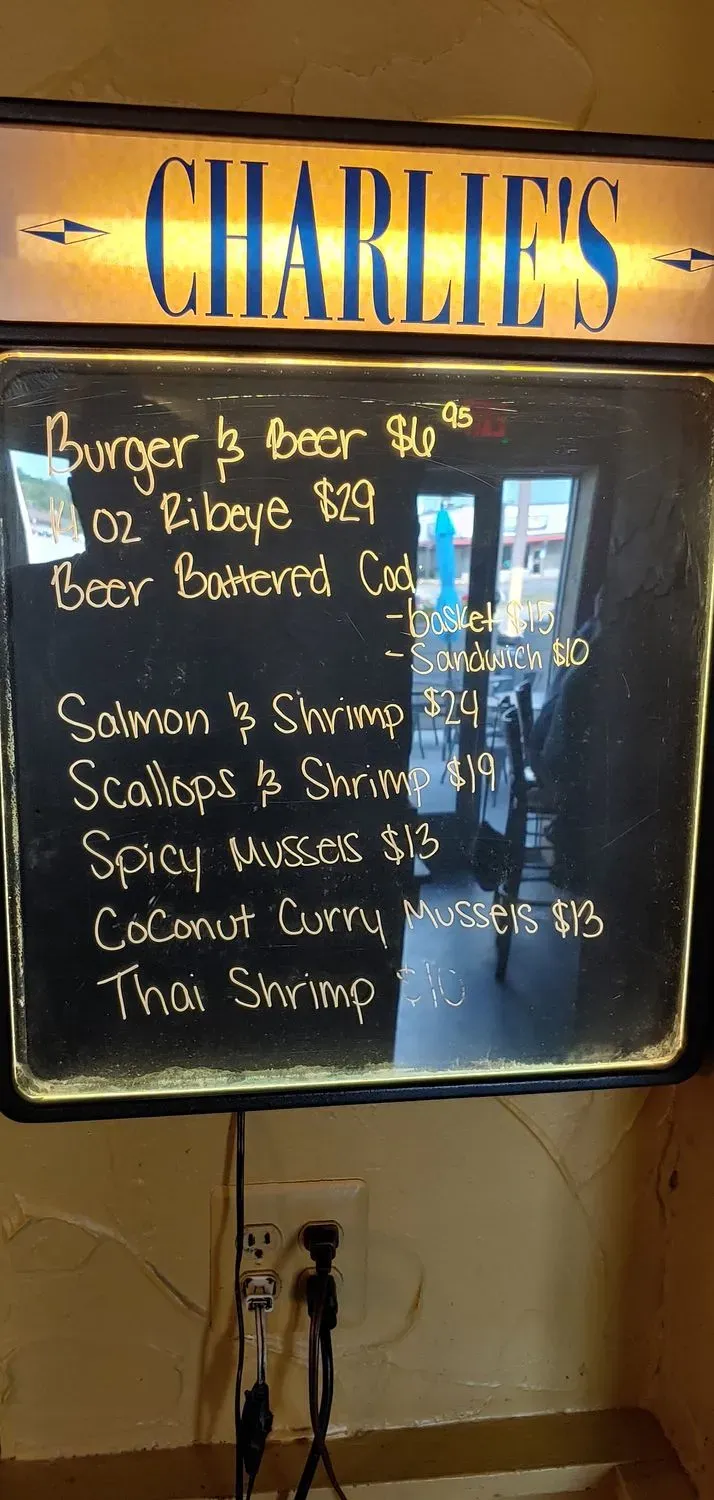 CHARLIE'S
Burger & Beer $6.95
14 oz Ribeye $29
Beer Battered Cod
-basket $15
-Sandwich $10
Salmon & Shrimp $24
Scallops & Shrimp $19
Spicy Mussels $13
Coconut Curry Mussels $13
Thai Shrimp $10